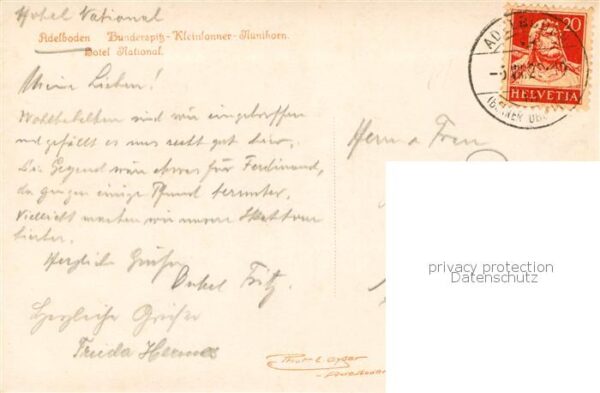 Hotel National
Adelboden Bunderspitz-Kleinlonner-Nunihorn.
Hotel National.
Meine Lieben!
Wohlbehalten sind wir eingetroffen
und gefällt es uns recht gut hier.
Die Gegend wäre etwas für Ferdinand,
da gingen einige Pfund herunter.
Vielleicht machen wir unsere
Herzliche Grüße
Onkel Fritz.
Herzliche Grüße
Frieda Hermes
Herrn u Frau
20
HELVETIA
privacy protection
Datenschutz